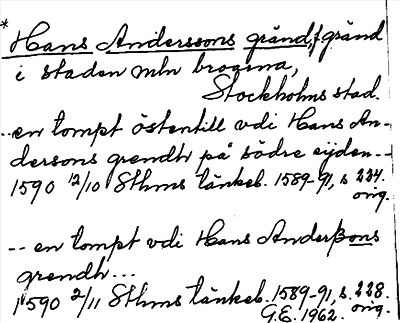 * Hans Anderssons gränd, f. gränd
i staden mln broarna,
Stockholms stad.
-- en tompt östentill vdi Hans An-
dersons grendh på södre sijden --
1590 12/10 Sthms tänkeb. 1589-91, s. 224.
orig.
-- en tompt vdi Hans Anderßons
grendh...
1590 2/11 Sthms tänkeb. 1589-91, s. 228.
G.E. 1962. orig.